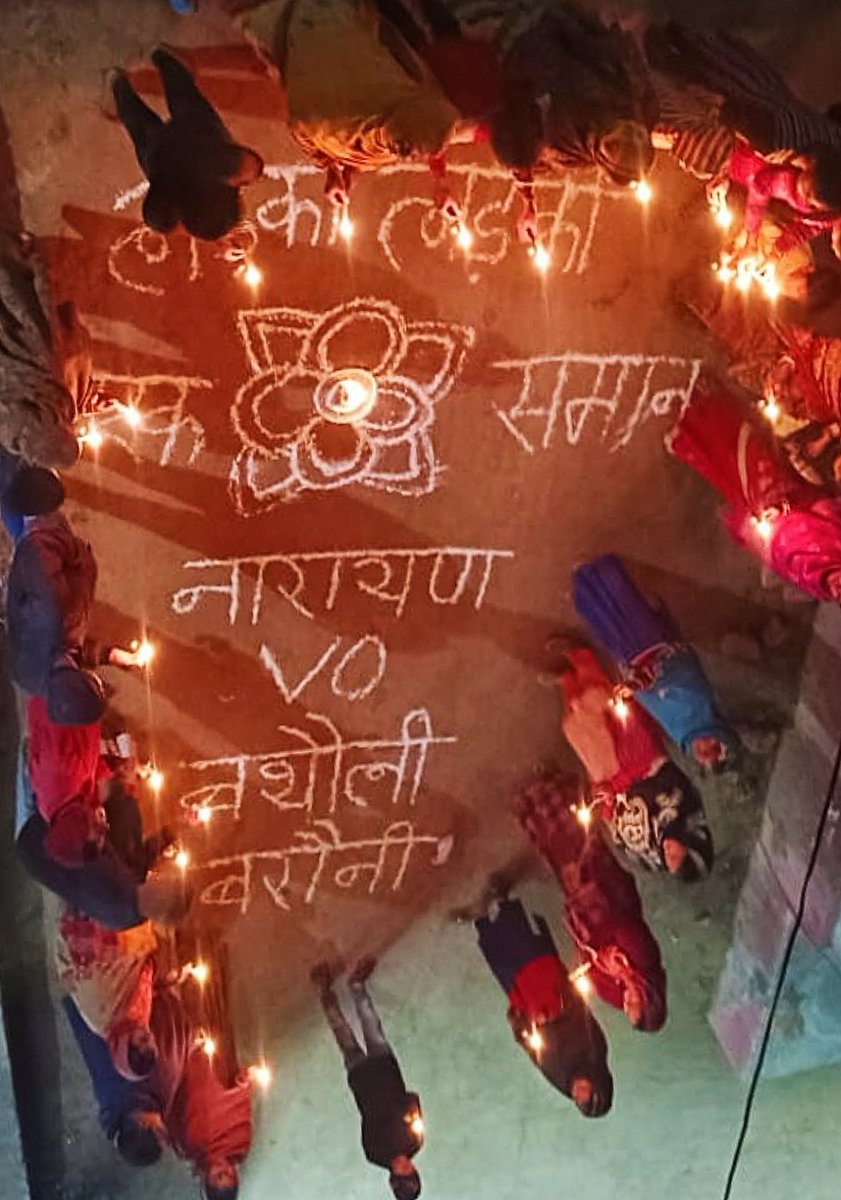 लड़का लड़की
एक समान
नारायण
VO
बथौली
बरौनी